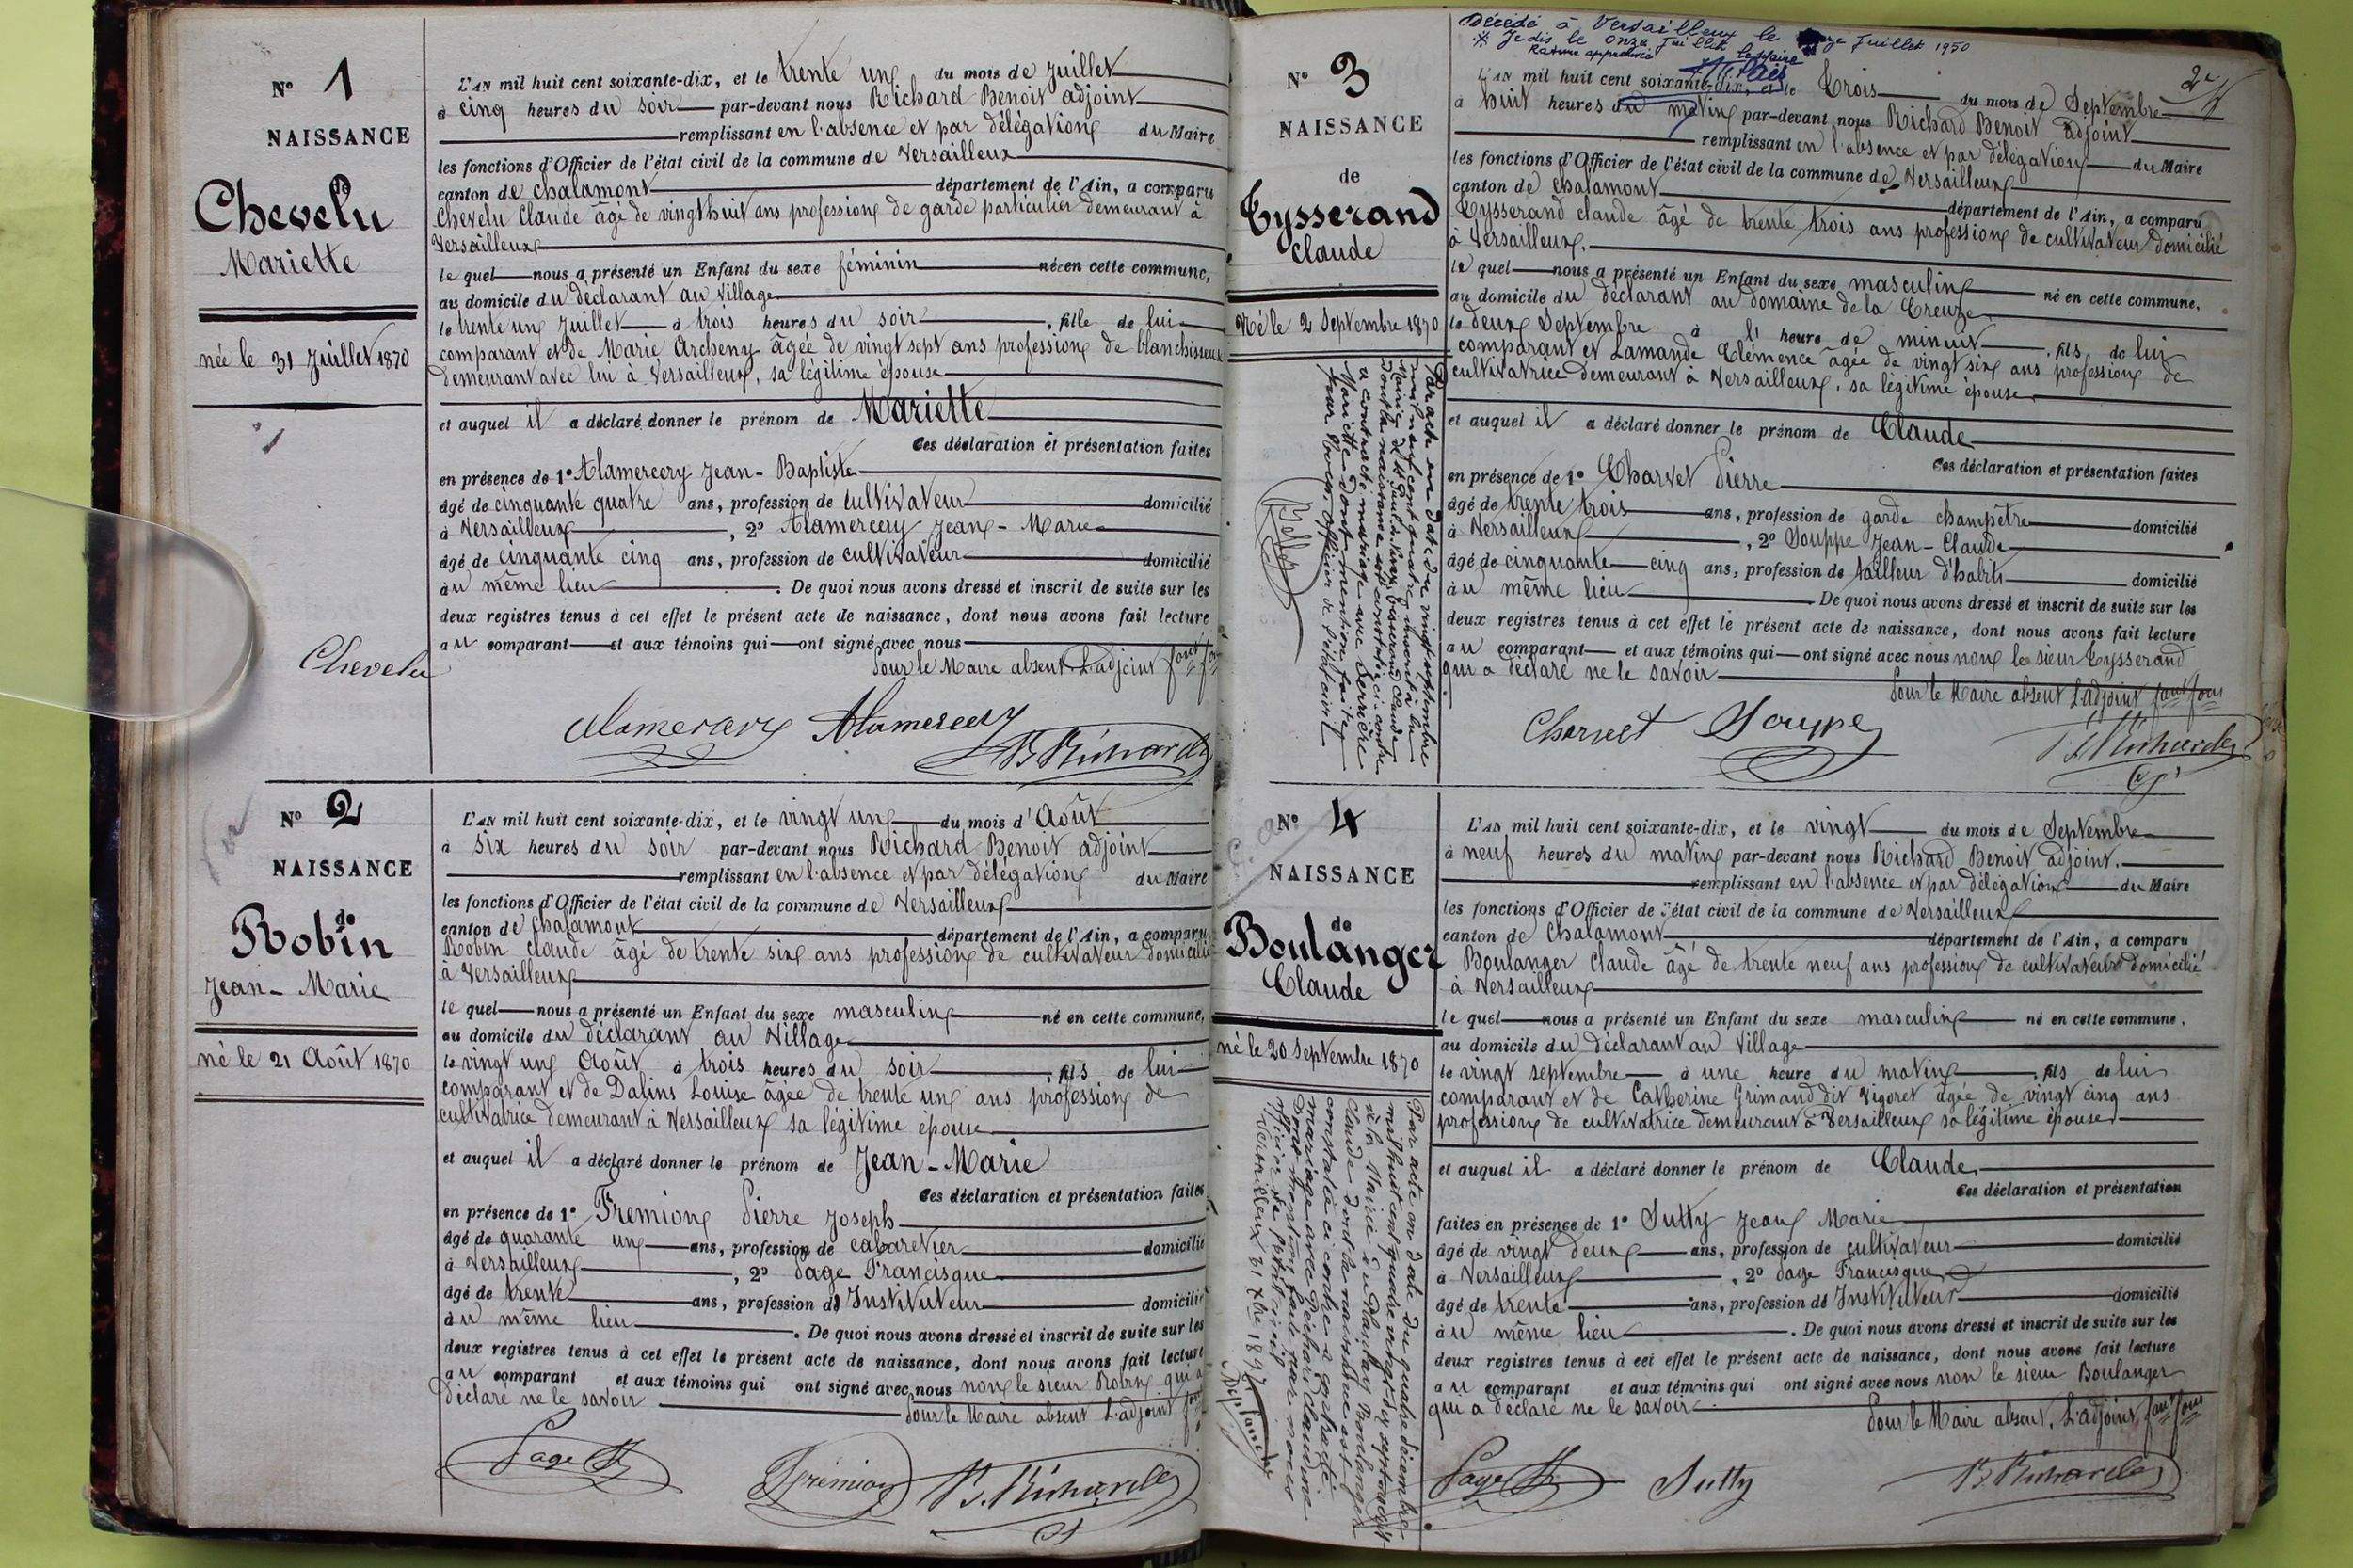 N° 1
NAISSANCE
de
Chevelu
Mariette
née le 31 Juillet 1870
L'AN mil huit cent soixante-dix, et le trente un du mois de Juillet
à cinq heures du soir par-devant nous Richard Benoit adjoint
remplissant en l'absence et par délégation du Maire
les fonctions d'Officier de l'état civil de la commune de Versailleux
canton de Chalamont département de l'Ain, a comparu
Chevelu Claude âgé de vingt huit ans profession de garde particulier demeurant à
Versailleux
le quel nous a présenté un Enfant du sexe féminin née en cette commune,
au domicile du déclarant au Village
le trente un Juillet à trois heures du soir, fille de lui
comparant et de Marie Archeny âgée de vingt sept ans profession de blanchisseuse
demeurant avec lui à Versailleux, sa légitime épouse
et auquel il a déclaré donner le prénom de Mariette
Ces déclaration et présentation faites
en présence de 1° Alamercery Jean-Baptiste
âgé de cinquante quatre ans, profession de cultivateur domicilié
à Versailleux, 2° Alamercery Jean-Marie
âgé de cinquante cinq ans, profession de cultivateur domicilié
au même lieu. De quoi nous avons dressé et inscrit de suite sur les
deux registres tenus à cet effet le présent acte de naissance, dont nous avons fait lecture
au comparant et aux témoins qui ont signé avec nous
Pour le Maire absent L'adjoint
Chevelu
Alamercery Alamercery
B. Richard
N° 2
NAISSANCE
de
Robin
Jean-Marie
né le 21 Août 1870
L'AN mil huit cent soixante-dix, et le vingt un du mois d'Août
à six heures du soir par-devant nous Richard Benoit adjoint
remplissant en l'absence et par délégation du Maire
les fonctions d'Officier de l'état civil de la commune de Versailleux
canton de Chalamont département de l'Ain, a comparu
Robin Claude âgé de trente six ans profession de cultivateur domicilié
à Versailleux
le quel nous a présenté un Enfant du sexe masculin né en cette commune,
au domicile du déclarant au Village
le vingt un Août à trois heures du soir, fils de lui
comparant et de Dalins Louise âgée de trente un ans profession de
cultivatrice demeurant à Versailleux sa légitime épouse
et auquel il a déclaré donner le prénom de Jean-Marie
Ces déclaration et présentation faites
en présence de 1° Fremion Pierre Joseph
âgé de quarante un ans, profession de cabaretier domicilié
à Versailleux, 2° Page Francisque
âgé de trente ans, profession de Instituteur domicilié
au même lieu. De quoi nous avons dressé et inscrit de suite sur les
deux registres tenus à cet effet le présent acte de naissance, dont nous avons fait lecture
au comparant et aux témoins qui ont signé avec nous non le sieur Robin qui a
déclaré ne le savoir
Pour le Maire absent L'adjoint
Page F. Frémion B. Richard
Décédé à Versailleux le onze Juillet 1950
Je dis le onze Juillet
Rature approuvée
Le Maire
2e
N° 3
NAISSANCE
de
Tysserand
Claude
Né le 2 Septembre 1870
Par acte en date du vingt septembre
mil neuf cent quatre inscrit à la
Mairie de St Paul de Varax, Tysserand Claude
dont la naissance est constatée ci contre
a contracté mariage avec Perrière
Mariette dont mention faite
par nous officier de l'état civil
L'AN mil huit cent soixante-dix, et le trois du mois de Septembre
à huit heures du matin par-devant nous Richard Benoit adjoint
remplissant en l'absence et par délégation du Maire
les fonctions d'Officier de l'état civil de la commune de Versailleux
canton de Chalamont département de l'Ain, a comparu
Tysserand Claude âgé de trente trois ans profession de cultivateur domicilié
à Versailleux.
le quel nous a présenté un Enfant du sexe masculin né en cette commune,
au domicile du déclarant au domaine de la Creuze
le deux Septembre à l' heure de minuit, fils de lui
comparant et Lamande Clémence âgée de vingt six ans profession de
cultivatrice demeurant à Versailleux, sa légitime épouse
et auquel il a déclaré donner le prénom de Claude
Ces déclaration et présentation faites
en présence de 1° Charvet Pierre
âgé de trente trois ans, profession de garde champêtre domicilié
à Versailleux, 2° Souppe Jean-Claude
âgé de cinquante cinq ans, profession de tailleur d'habits domicilié
au même lieu. De quoi nous avons dressé et inscrit de suite sur les
deux registres tenus à cet effet le présent acte de naissance, dont nous avons fait lecture
au comparant et aux témoins qui ont signé avec nous non le sieur Tysserand
qui a déclaré ne le savoir
Pour le Maire absent L'adjoint
Charvet Souppe B. Richard
N° 4
NAISSANCE
de
Boulanger
Claude
né le 20 Septembre 1870
Par acte en date du quatre décembre
mil huit cent quatre vingt-dix sept inscrit
à la Mairie du Plantay Boulanger
Claude dont la naissance est
constatée ci contre a contracté
mariage avec Péchard Claudine
Dont mention faite par nous
officier de l'état civil
Versailleux 31 Xbre 1897
L'AN mil huit cent soixante-dix, et le vingt du mois de Septembre
à neuf heures du matin par-devant nous Richard Benoit adjoint.
remplissant en l'absence et par délégation du Maire
les fonctions d'Officier de l'état civil de la commune de Versailleux
canton de Chalamont département de l'Ain, a comparu
Boulanger Claude âgé de trente neuf ans profession de cultivateur domicilié
à Versailleux
le quel nous a présenté un Enfant du sexe masculin né en cette commune,
au domicile du déclarant au Village
le vingt septembre à une heure du matin, fils de lui
comparant et de Catherine Grimand dit Vigoret âgée de vingt cinq ans
profession de cultivatrice demeurant à Versailleux sa légitime épouse
et auquel il a déclaré donner le prénom de Claude
Ces déclaration et présentation
faites en présence de 1° Sutty Jean Marie
âgé de vingt deux ans, profession de cultivateur domicilié
à Versailleux, 2° Page Francisque
âgé de trente ans, profession de Instituteur domicilié
au même lieu. De quoi nous avons dressé et inscrit de suite sur les
deux registres tenus à cet effet le présent acte de naissance, dont nous avons fait lecture
au comparant et aux témoins qui ont signé avec nous non le sieur Boulanger
qui a déclaré ne le savoir
Pour le Maire absent, L'adjoint
Page F. Sutty B. Richard